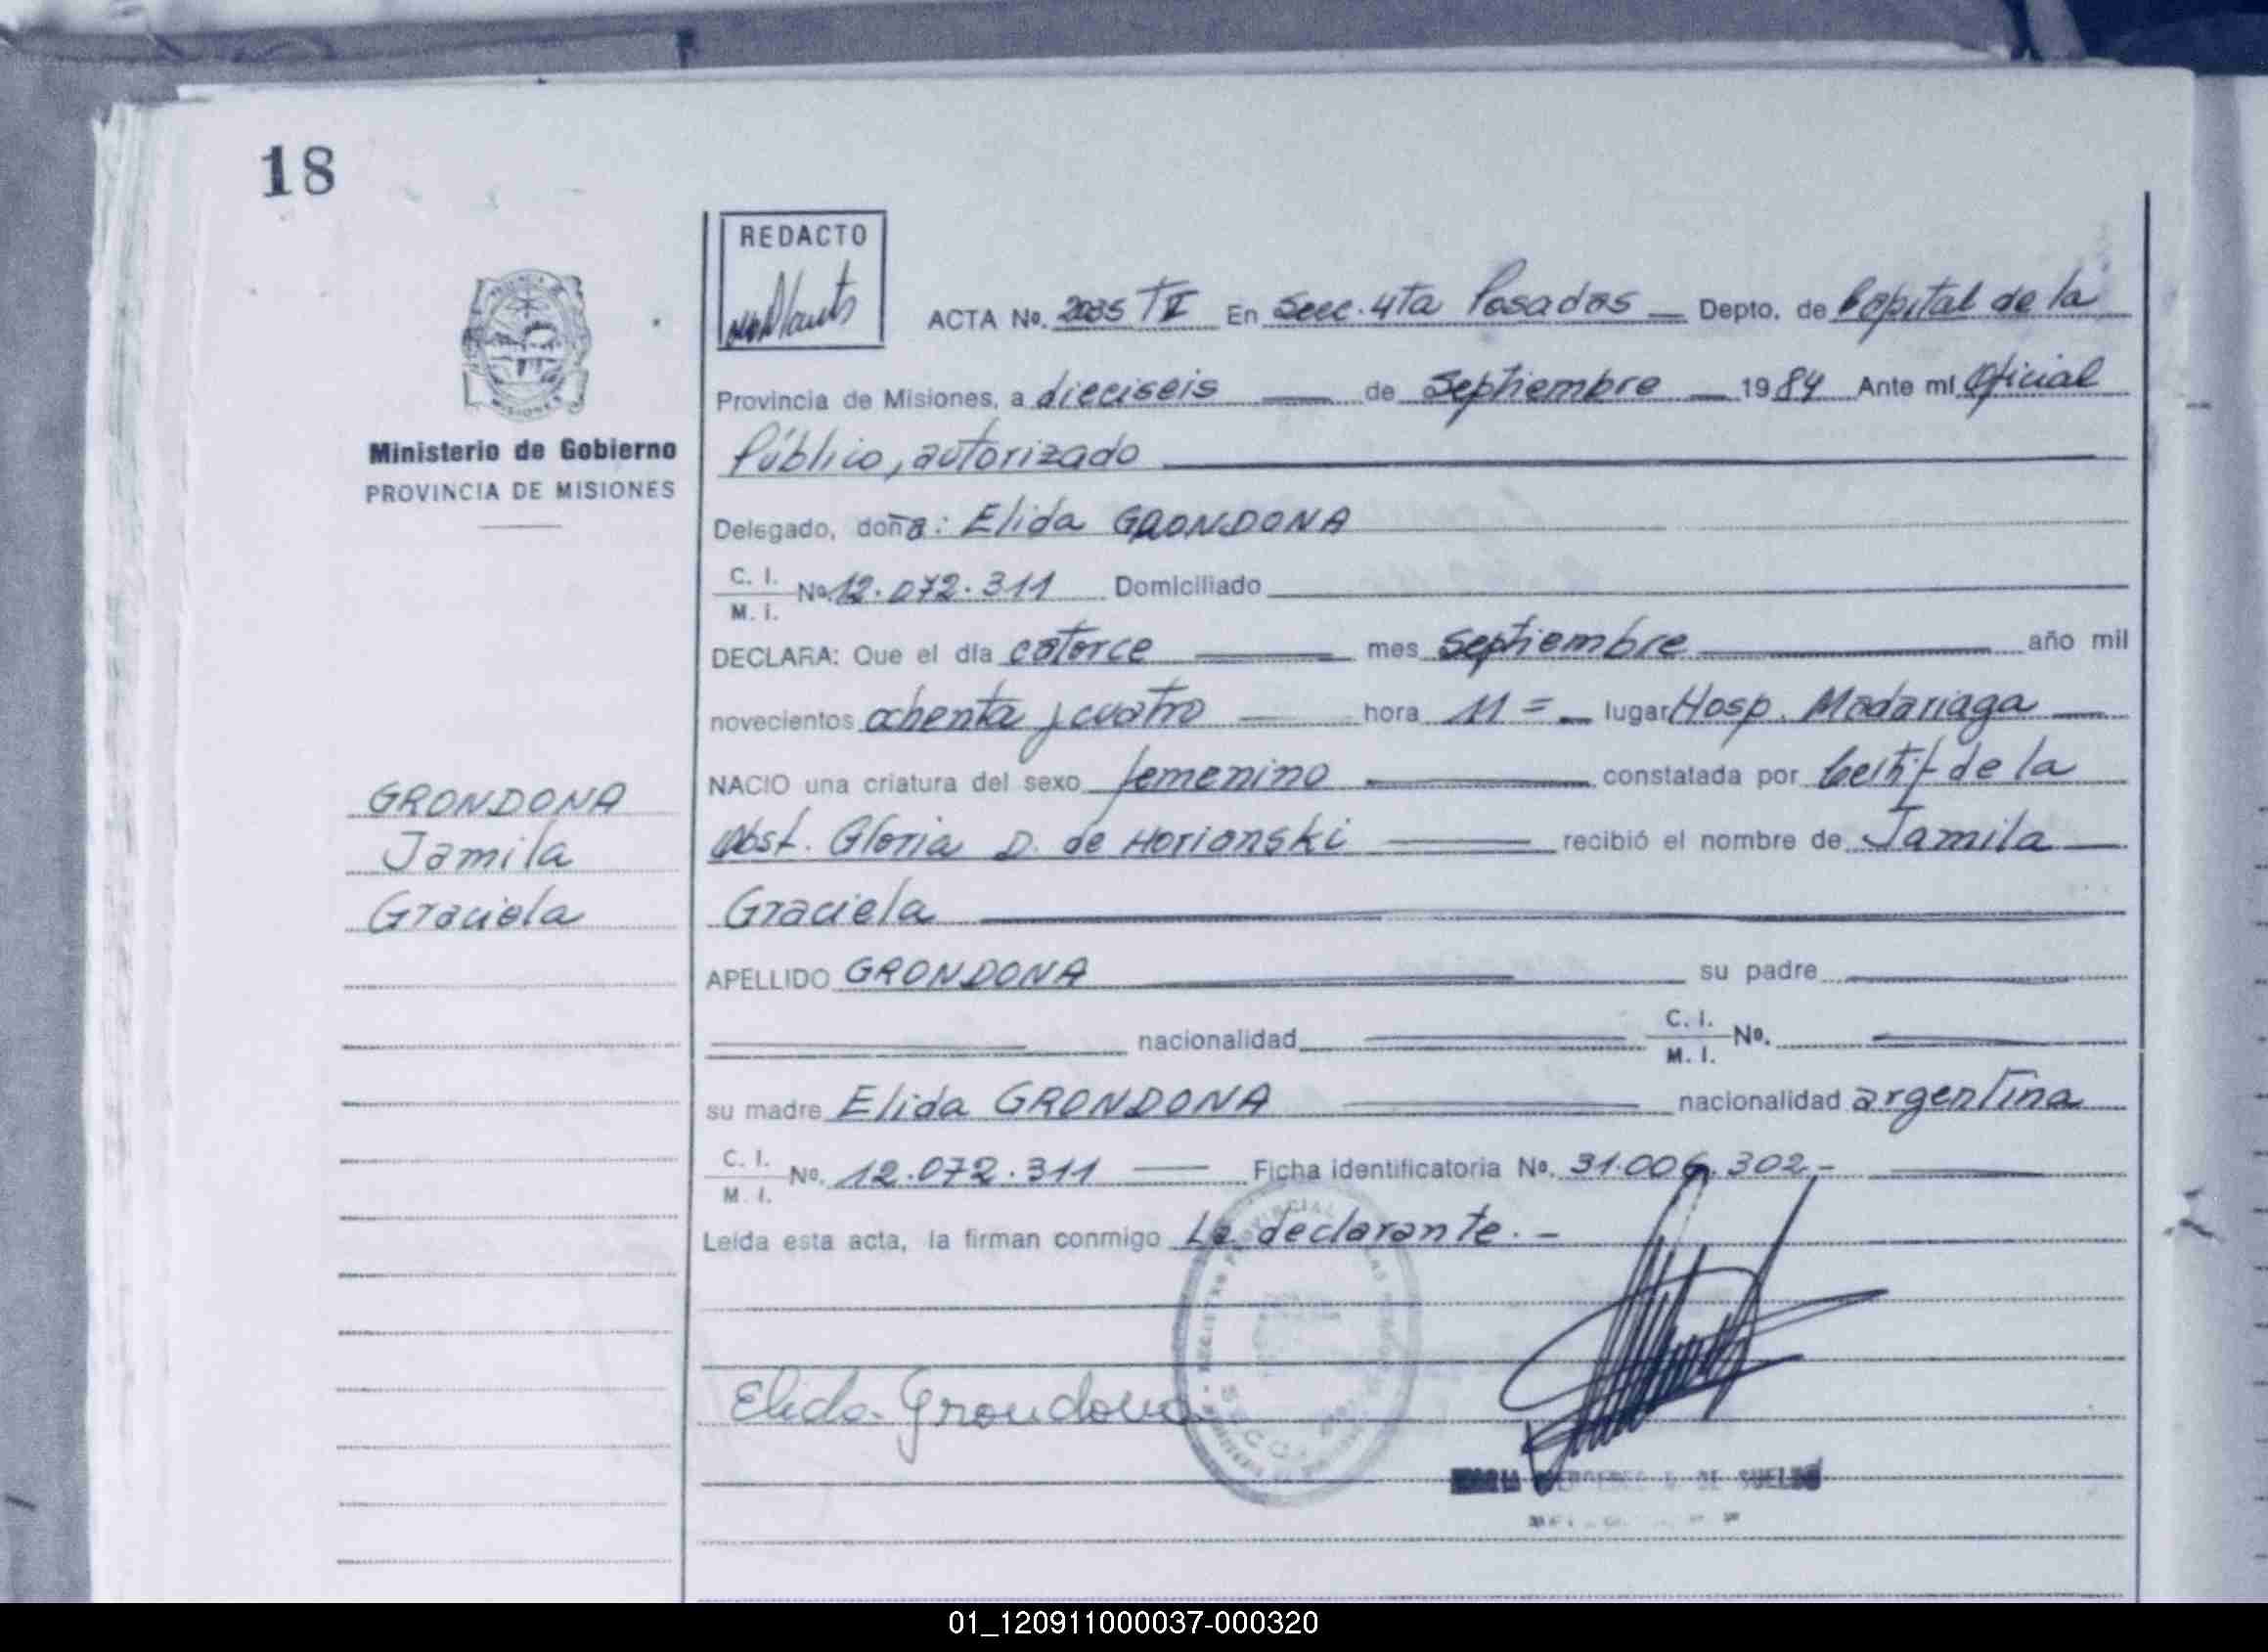 18
REDACTO
ACTA No. 2035 TII En Secc. 4ta Posadas Depto. de Capital de la
Provincia de Misiones, a dieciseis de Septiembre 1984 Ante mí Oficial
Público, autorizado
Delegado, doña: Elida GRONDONA
C. I. M. I. No. 12.072.311 Domiciliado
DECLARA: Que el día catorce mes Septiembre año mil
novecientos ochenta y cuatro hora 11= lugar Hosp. Madariaga
NACIO una criatura del sexo femenino constatada por Certif de la
Obst. Gloria D. de Horianski recibió el nombre de Jamila
Graciela
APELLIDO GRONDONA su padre
nacionalidad C. I. M. I. No.
su madre Elida GRONDONA nacionalidad argentina
C. I. M. I. No. 12.072.311 Ficha identificatoria No. 31.006.302-
Leída esta acta, la firman conmigo La declarante.-
Elida Grondona
MISIONES
Ministerio de Gobierno
PROVINCIA DE MISIONES
GRONDONA
Jamila
Graciela
DE SUELDO
01_120911000037-000320